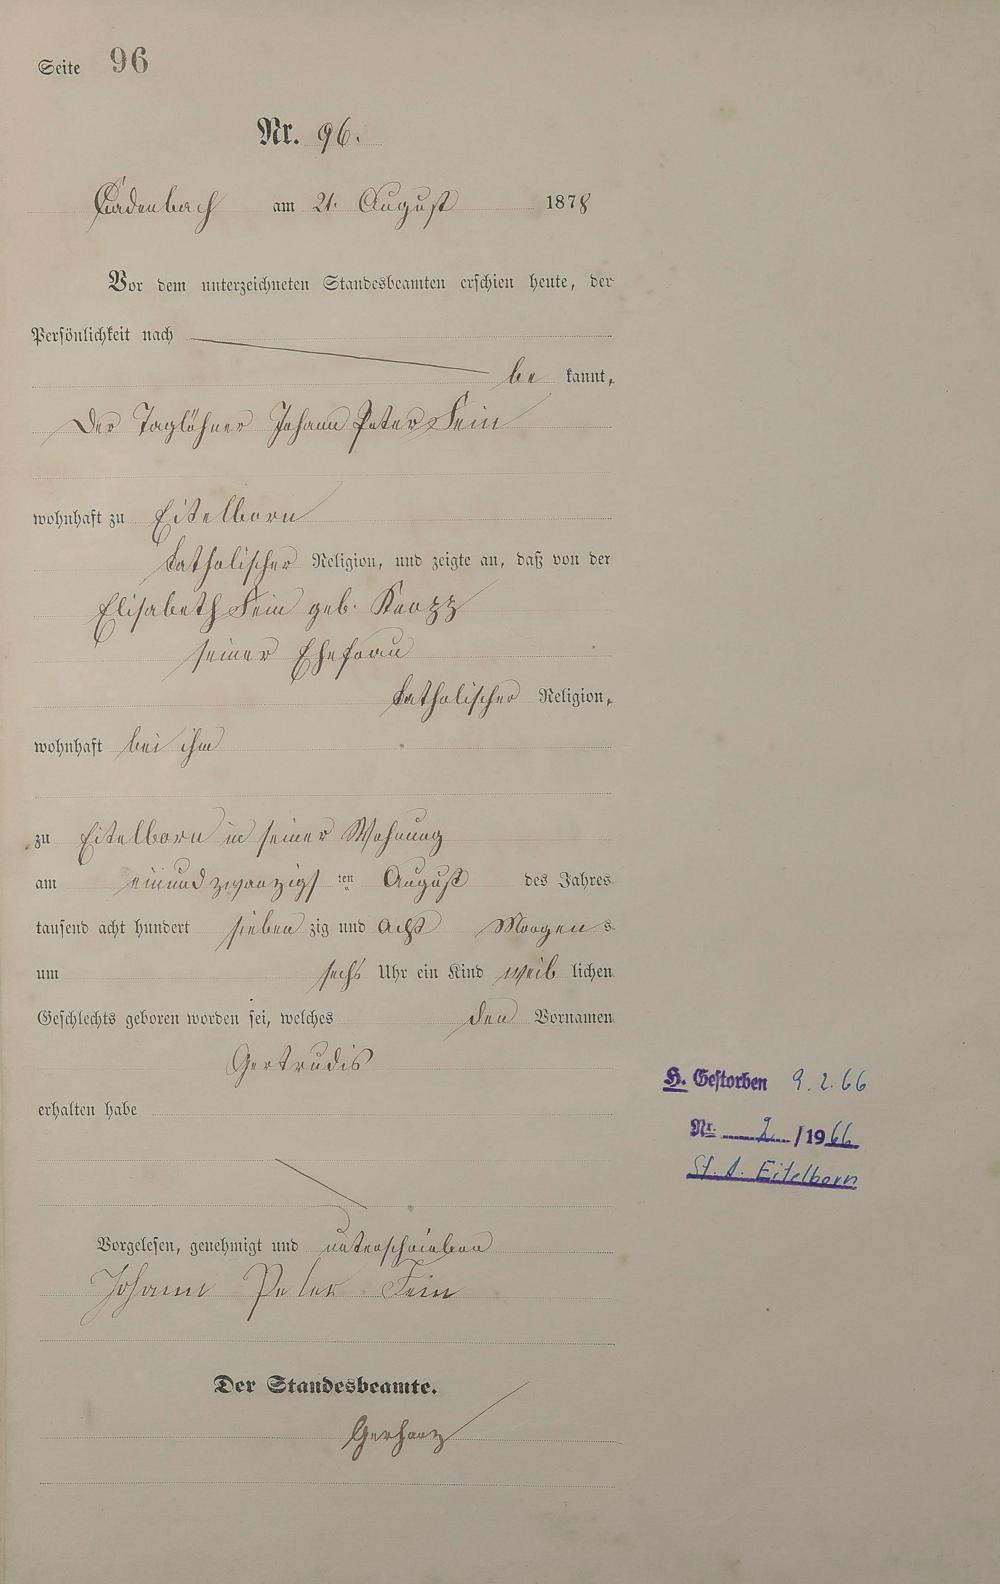 Seite 96
Nr. 96.
Cadenbach am 21. August 1878
Vor dem unterzeichneten Standesbeamten erschien heute, der
Persönlichkeit nach
be kannt,
der Taglöhner Johann Peter Fein
wohnhaft zu Eitelborn
katholischer Religion, und zeigte an, daß von der
Elisabeth Fein geb. Knopp
seiner Ehefrau
katholischer Religion,
wohnhaft bei ihm
zu Eitelborn in seiner Wohnung
am einundzwanzigs ten August des Jahres
tausend acht hundert sieben zig und acht Morgen s
um sechs Uhr ein Kind weib lichen
Geschlechts geboren worden sei, welches den Vornamen
Gertrudis
erhalten habe
H. Gestorben 9.2.66
Nr. 2 / 1966
St. A. Eitelborn
Vorgelesen, genehmigt und unterschrieben
Johann Peter Fein
Der Standesbeamte.
Gerharz